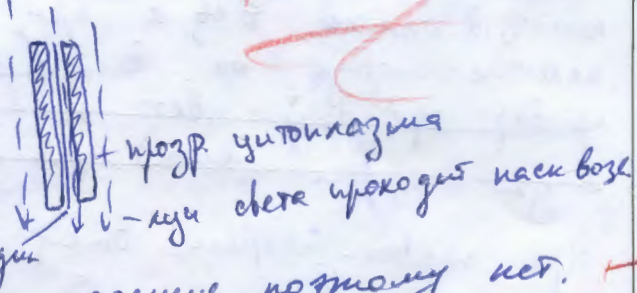 прозр. цитоплазма
- луч света проходит насквозь
поэтому нет.